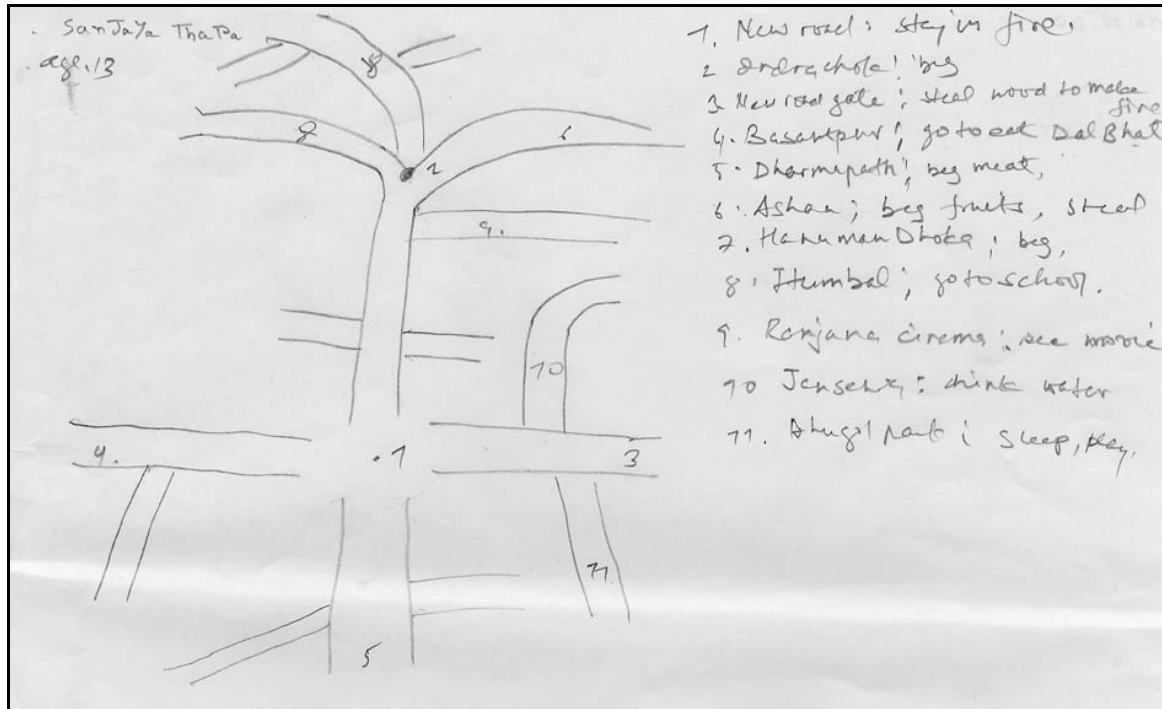 . SanJaYa ThaPa
. age. 13
1. New road: stay in fire.
2 Indrachok: beg
3 New road gate; steal wood to make
fire
4. Basantpur; go to eat Dal Bhat
5. Dharmepath; beg meat,
6. Ashan; beg fruits, steal
7. HanumanDhoka; beg,
8. Itumbal; go to school.
9. Ranjana cinema: see movie
10 : drink water
11. park: sleep, play.
8
8
6
2
9.
10
4.
.1
3
11
5